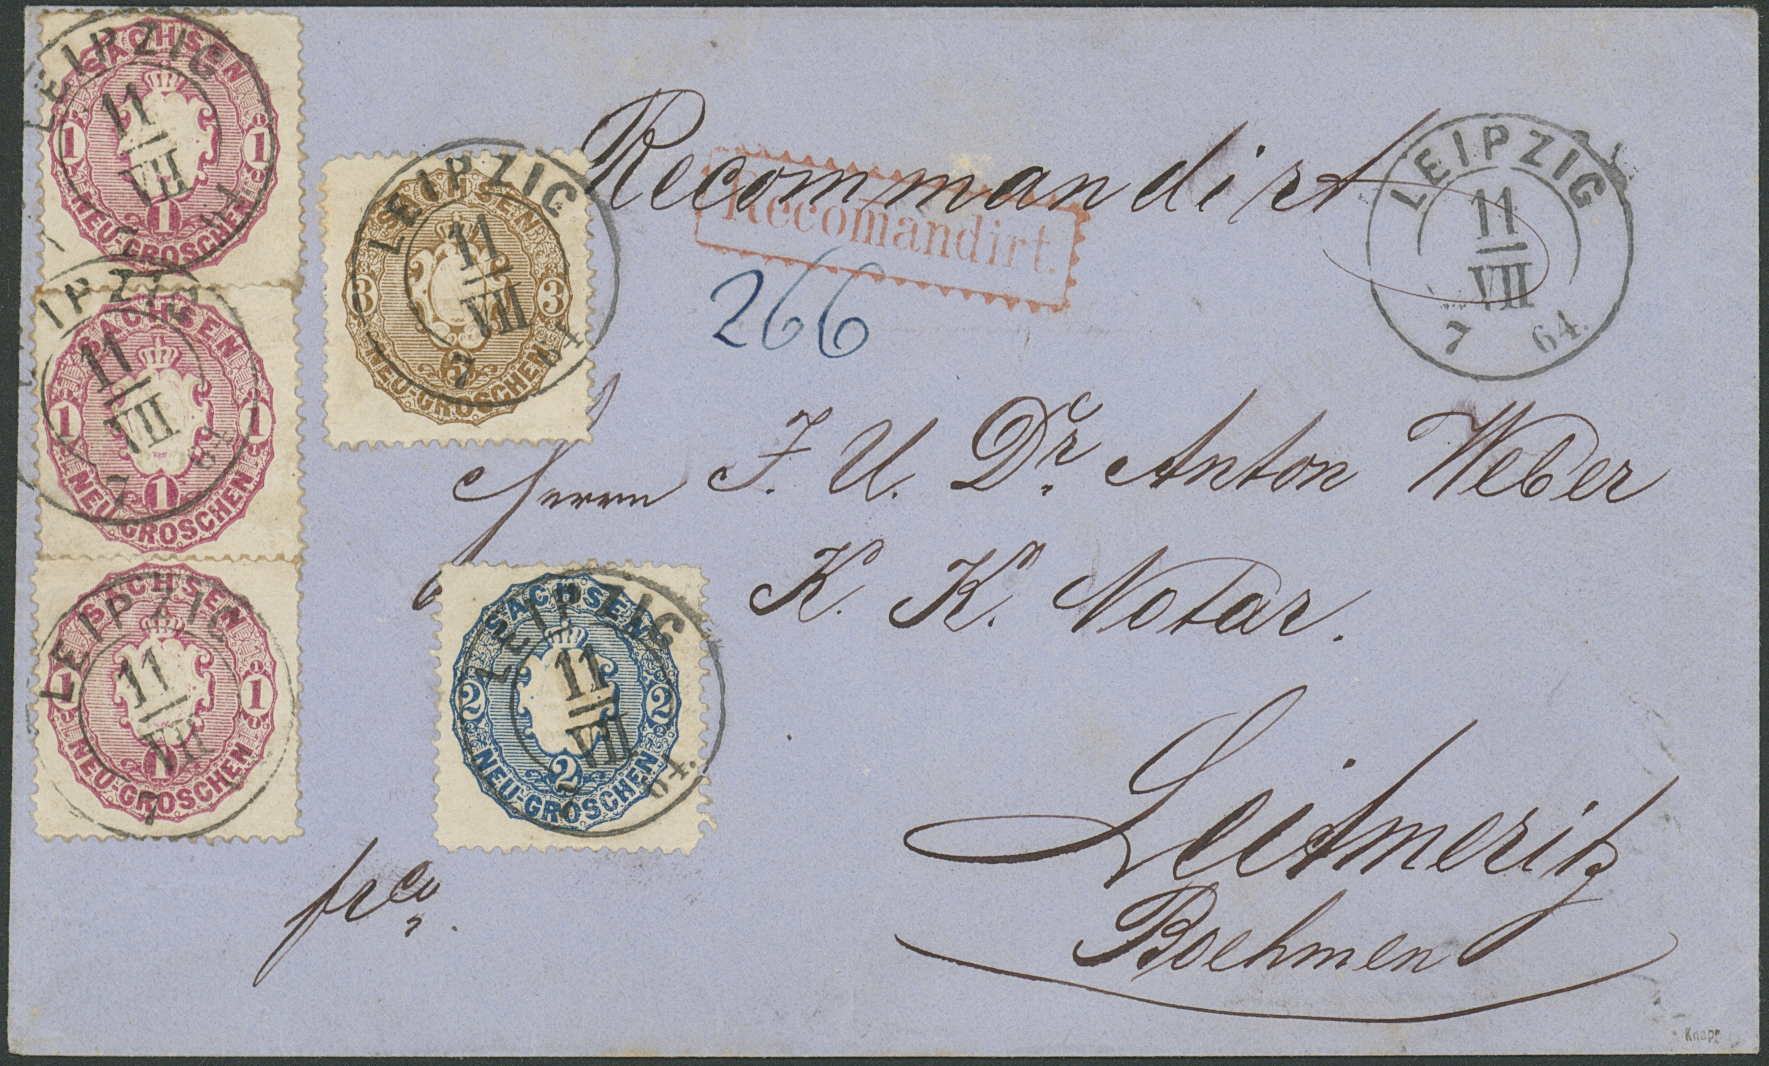 SACHSEN
1 1
1
NEU-GROSCHEN
LEIPZIG
11
VII
SACHSEN
1 1
1
NEU-GROSCHEN
LEIPZIG
11
VII
7 64
SACHSEN
1 1
1
NEU-GROSCHEN
LEIPZIG
11
VII
7
SACHSEN
3 3
3
NEU-GROSCHEN
LEIPZIG
11
VII
7 64.
Recommandirt
Recomandirt.
266
LEIPZIG
11
VII
7 64.
Herrn J. U. Dr. Anton Weber
K. K. Notar.
SACHSEN
2 2
2
NEU-GROSCHEN
LEIPZIG
11
VII
64.
Leitmeritz
Boehmen
frco.
Knapp